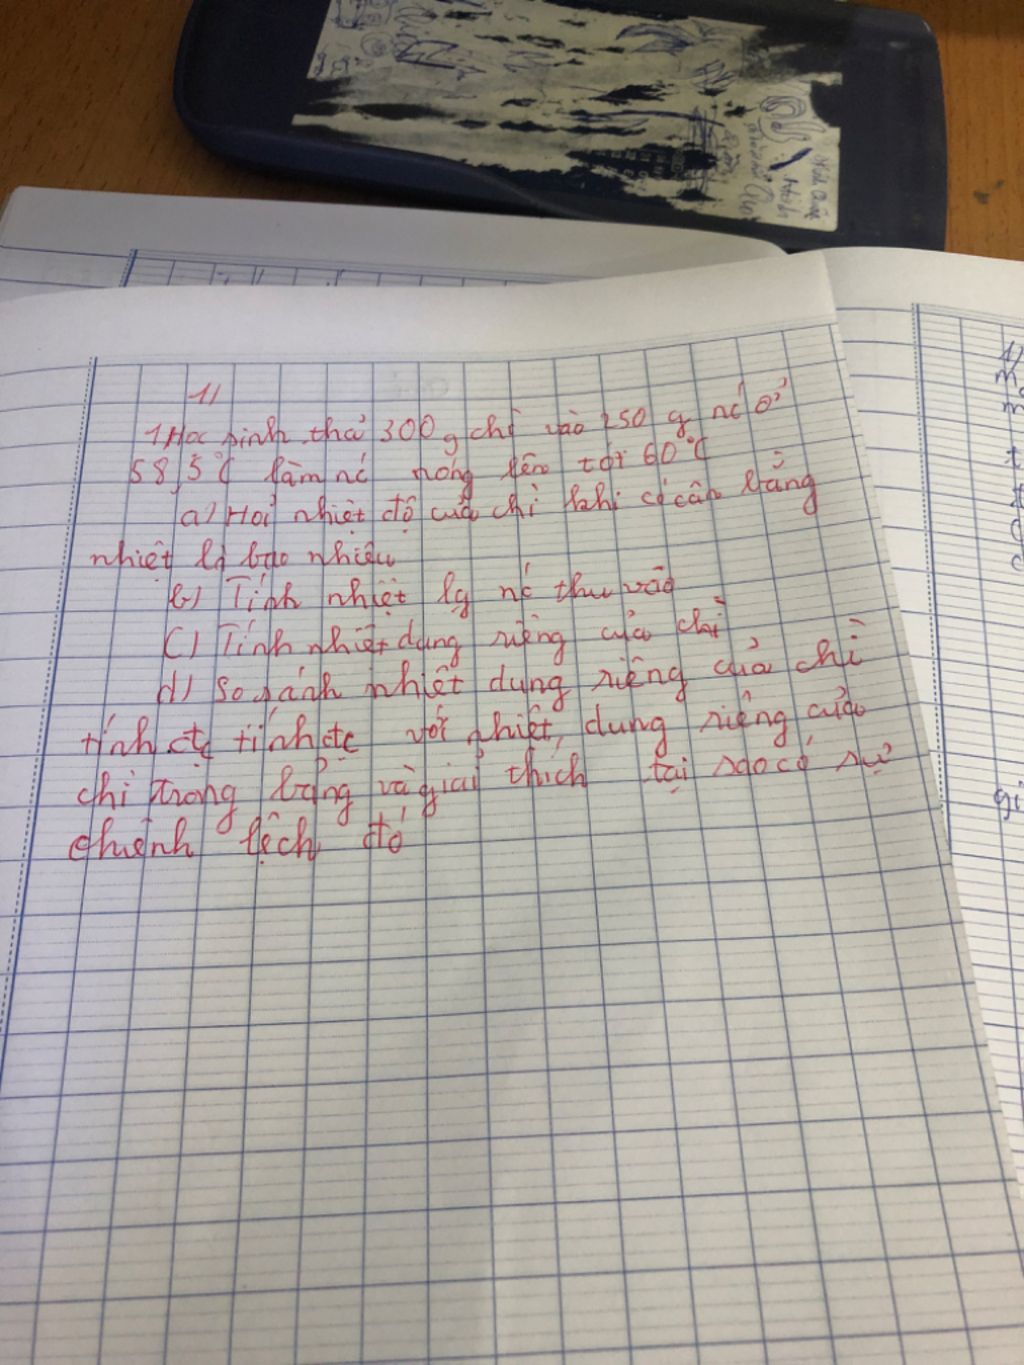 1)
1 Học sinh thả 300 g chì vào 250 g nc ở
58,5°C làm nc nóng lên tới 60°C
a) Hỏi nhiệt độ của chì khi có cân bằng
nhiệt là bao nhiêu
b) Tính nhiệt lg nc thu vào
c) Tính nhiệt dung riêng của chì
d) so sánh nhiệt dung riêng của chì
tính đc tính đc với nhiệt, dung riêng của
chì trong bảng và giải thích tại sao có sự
chênh lệch đó